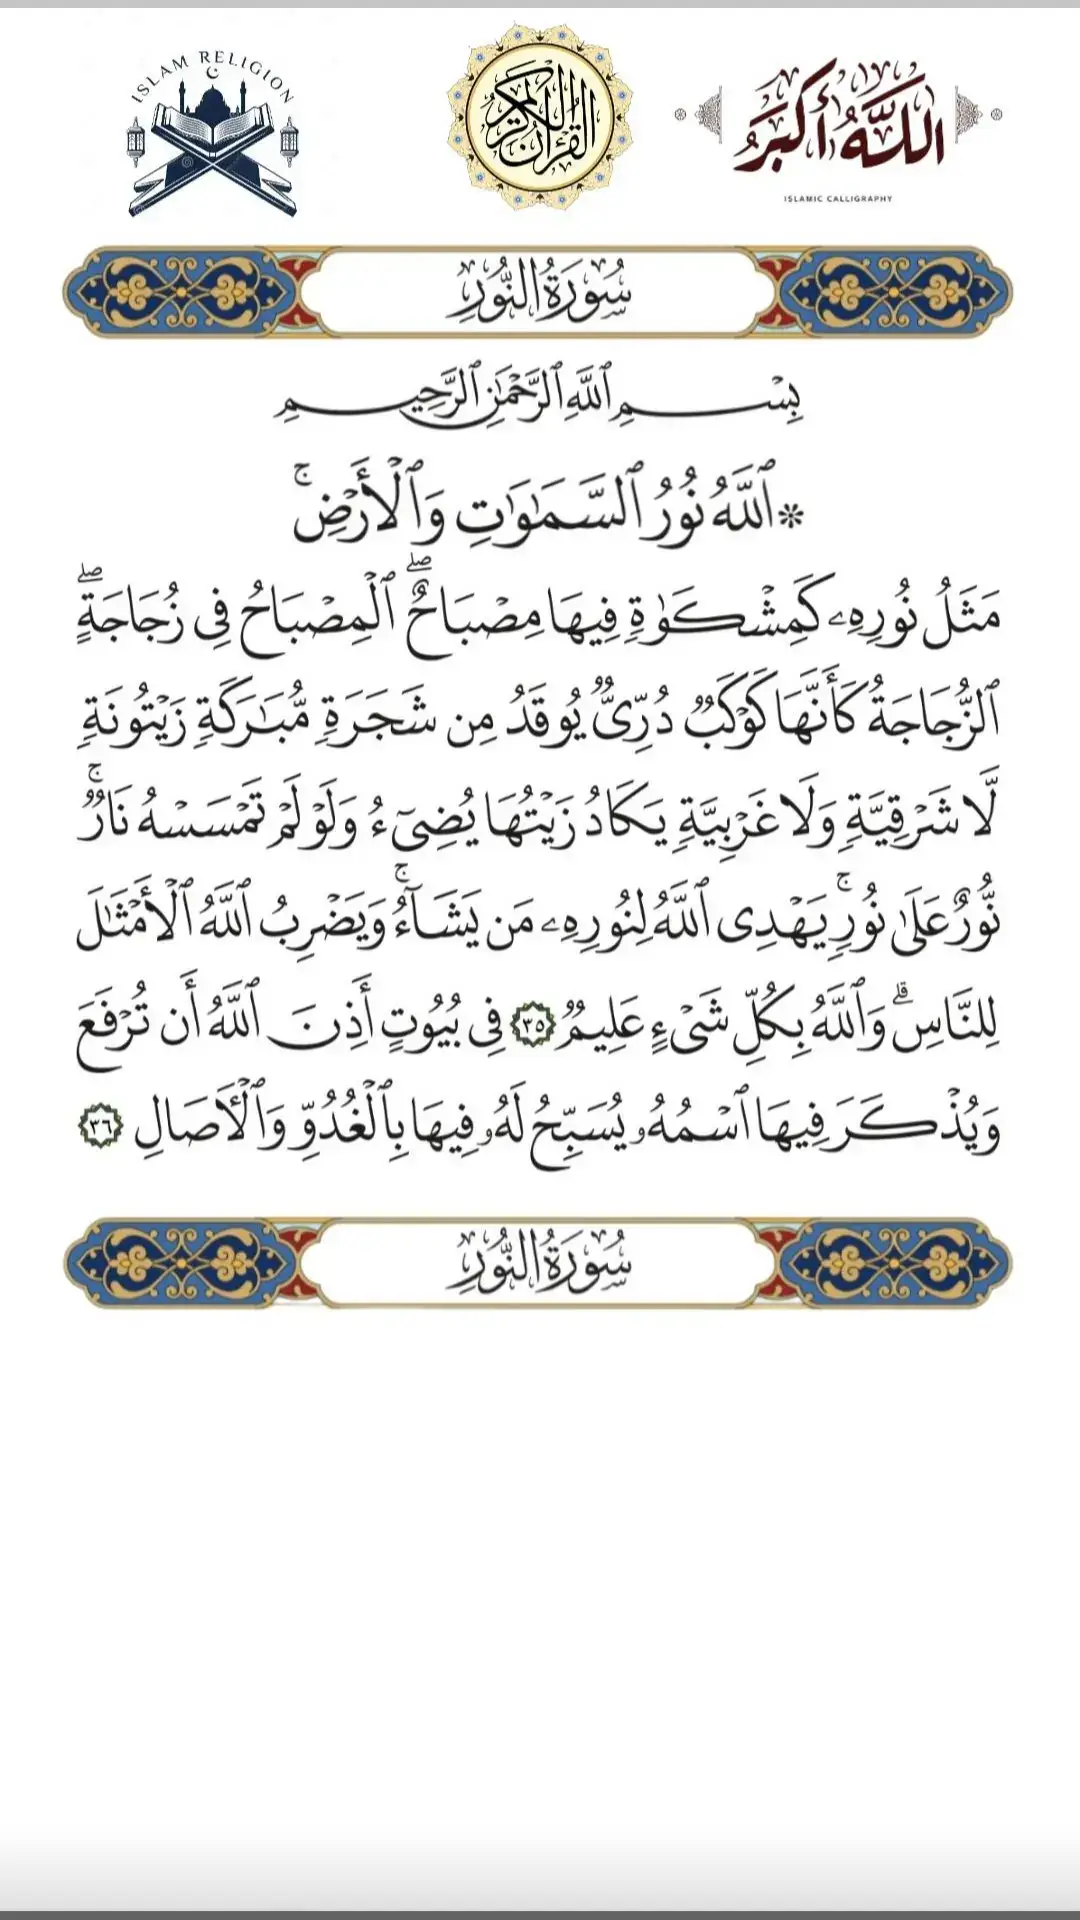 ISLAM RELIGION
القرآن الكريم
الله أكبر
ISLAMIC CALLIGRAPHY
سُورَةُ النُّورِ
بِسْمِ ٱللَّهِ ٱلرَّحْمَٰنِ ٱلرَّحِيمِ
۞ٱللَّهُ نُورُ ٱلسَّمَٰوَٰتِ وَٱلْأَرْضِۚ
مَثَلُ نُورِهِۦ كَمِشْكَوٰةٍ فِيهَا مِصْبَاحٌۖ ٱلْمِصْبَاحُ فِى زُجَاجَةٍۖ
ٱلزُّجَاجَةُ كَأَنَّهَا كَوْكَبٌ دُرِّىٌّ يُوقَدُ مِن شَجَرَةٍ مُّبَٰرَكَةٍ زَيْتُونَةٍ
لَّا شَرْقِيَّةٍ وَلَا غَرْبِيَّةٍ يَكَادُ زَيْتُهَا يُضِىٓءُ وَلَوْ لَمْ تَمْسَسْهُ نَارٌۚ
نُّورٌ عَلَىٰ نُورٍۚ يَهْدِى ٱللَّهُ لِنُورِهِۦ مَن يَشَآءُۚ وَيَضْرِبُ ٱللَّهُ ٱلْأَمْثَٰلَ
لِلنَّاسِۗ وَٱللَّهُ بِكُلِّ شَىْءٍ عَلِيمٌ ٣٥ فِى بُيُوتٍ أَذِنَ ٱللَّهُ أَن تُرْفَعَ
وَيُذْكَرَ فِيهَا ٱسْمُهُۥ يُسَبِّحُ لَهُۥ فِيهَا بِٱلْغُدُوِّ وَٱلْـَٔاصَالِ ٣٦
سُورَةُ النُّورِ